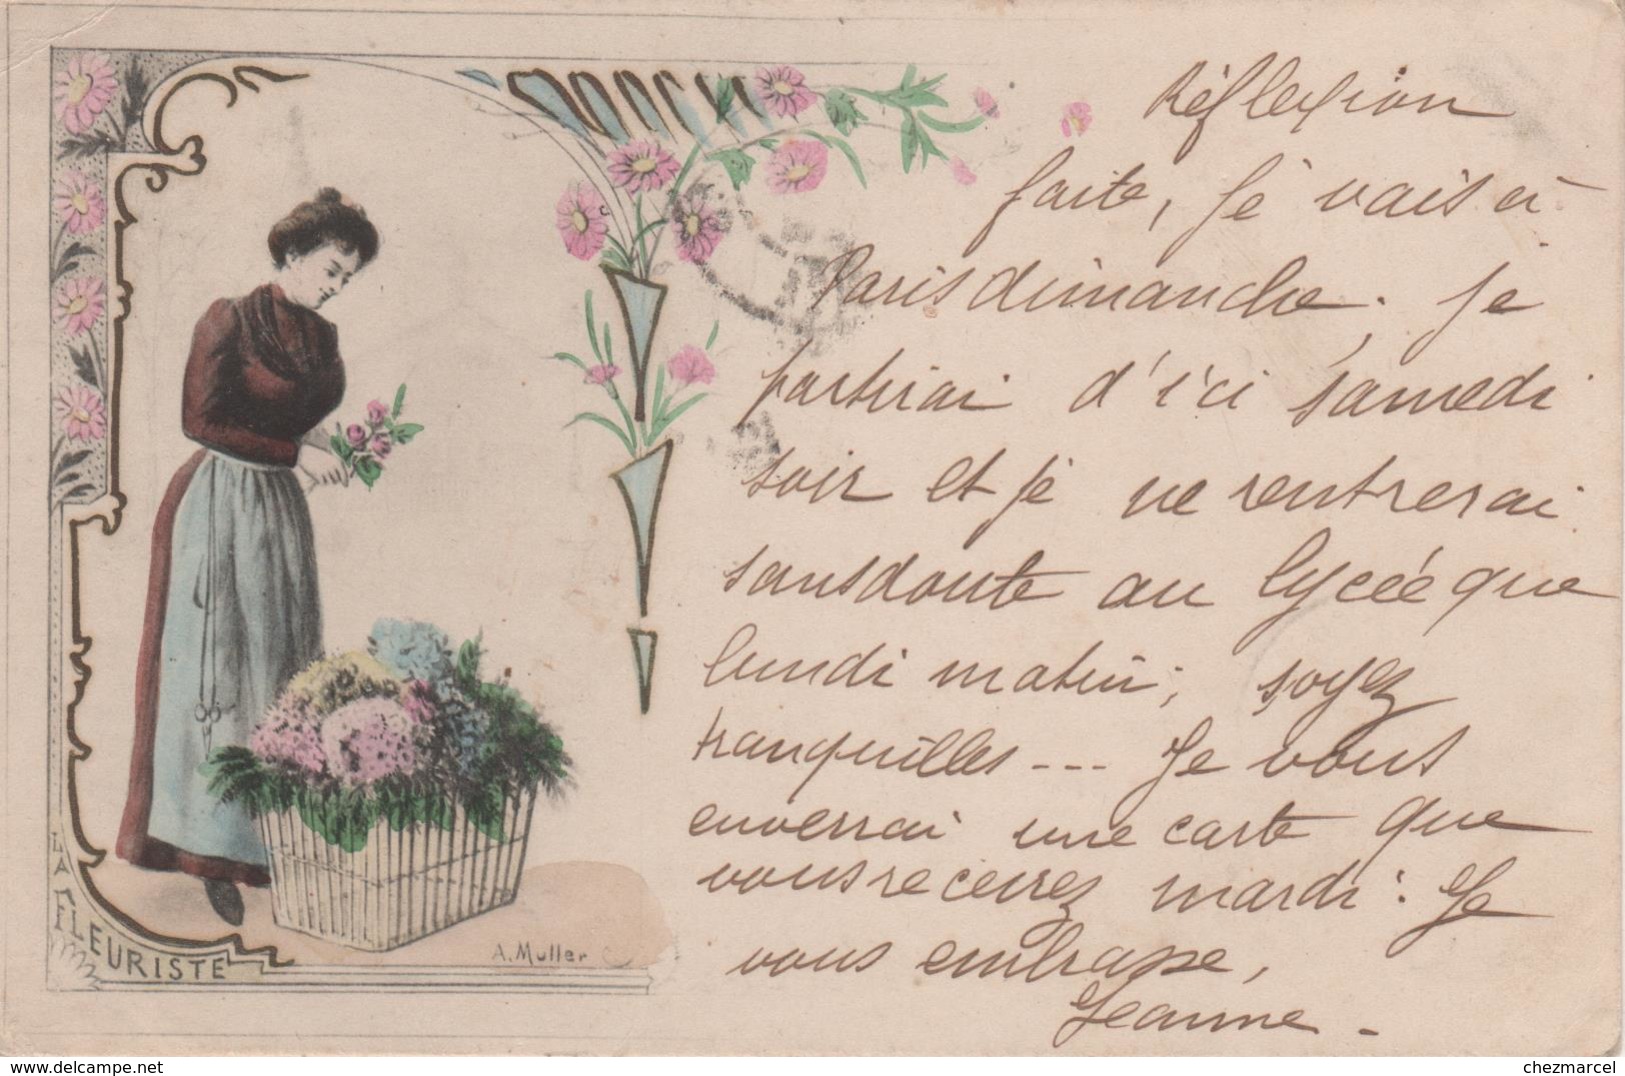 Réflexion
faite, je vais à
Paris dimanche. Je
partirai d'ici samedi
soir et je ne rentrerai
sans doute au lycée que
lundi matin; soyez
tranquilles --- Je vous
enverrai une carte que
vous recevrez mardi. Je
vous embrasse,
Jeanne -
LA FLEURISTE
A. Muller
delcampe.net
chezmarcel